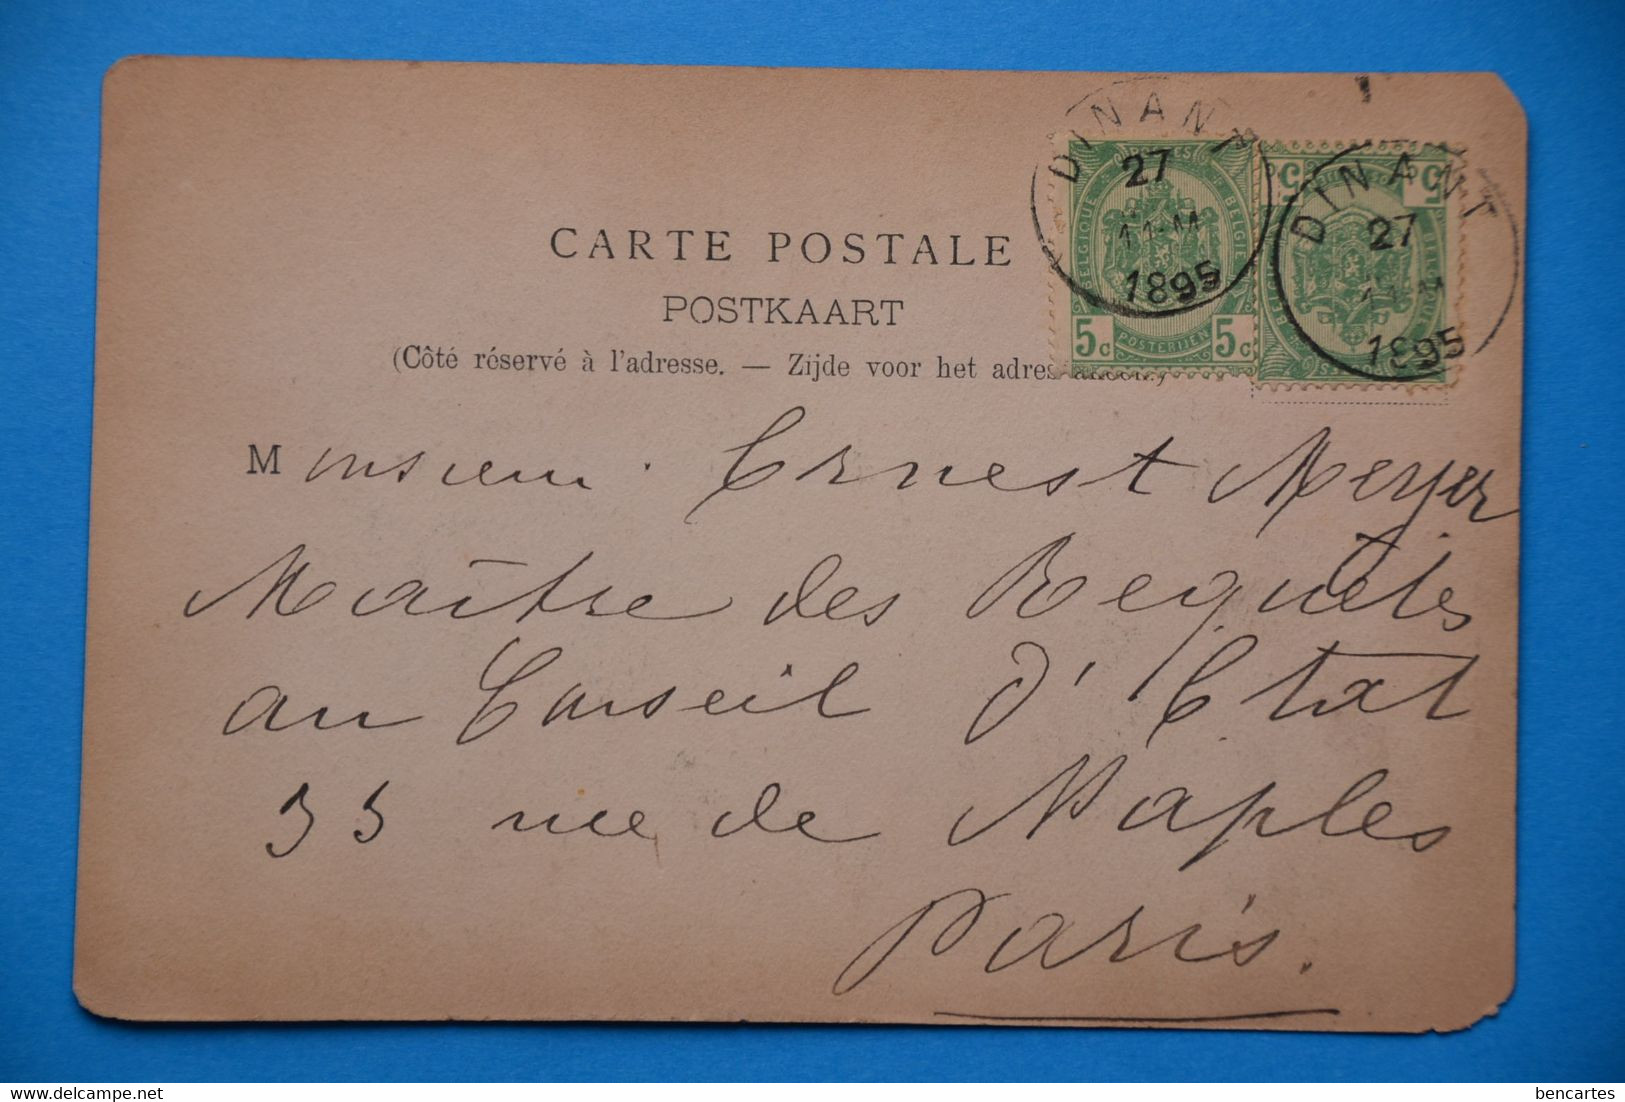 CARTE POSTALE
POSTKAART
(Côté réservé à l'adresse. — Zijde voor het adres
Monsieur Ernest Meyer
Maître des Requêtes
au Conseil d'Etat
33 rue de Naples
Paris.
DINANT
27
11-M
1895
BELGIQUE
BELGIË
5c 5c
POSTERIJEN
DINANT
27
1895
bencartes